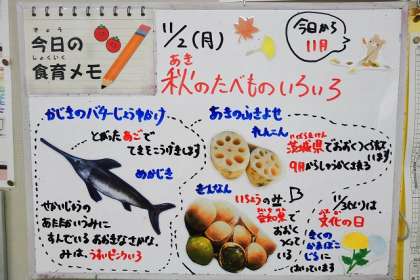 きょう
今日の
しょくいく
食育メモ
11/2(月)
今日から
11月
あき
秋のたべものいろいろ
かじきのバターじょうゆかけ
とがったあごで
てきをこうげきします
めかじき
せかいじゅうの
あたたかいうみに
すんでいるおおきなさかな。
みは、うすいピンクいろ
あきのふきよせ
れんこん
いばらきけん
茨城県でおおくつくられて
います
9月からしゅうかくされる
ぎんなん
いちょうの
あいちけん
愛知県で
おおく
つくって
いる
11/3(火)は
ぶんか ひ
文化の日
きくの
かまぼこ
しるに
はいっています